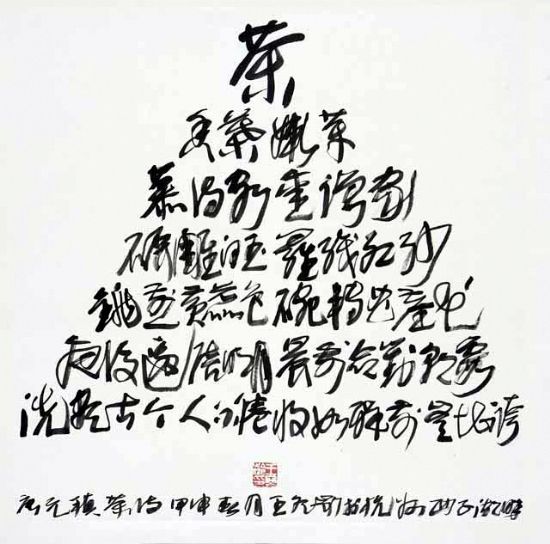 茶
香葉嫩芽
慕詩客愛僧家
碾雕白玉羅織紅紗
銚煎黃蕊色碗轉曲塵花
夜後邀陪明月晨前命對朝霞
洗盡古今人不倦將如醉前豈堪誇
唐元稹茶詩甲申秋月王冬齡書於杭州西子湖畔